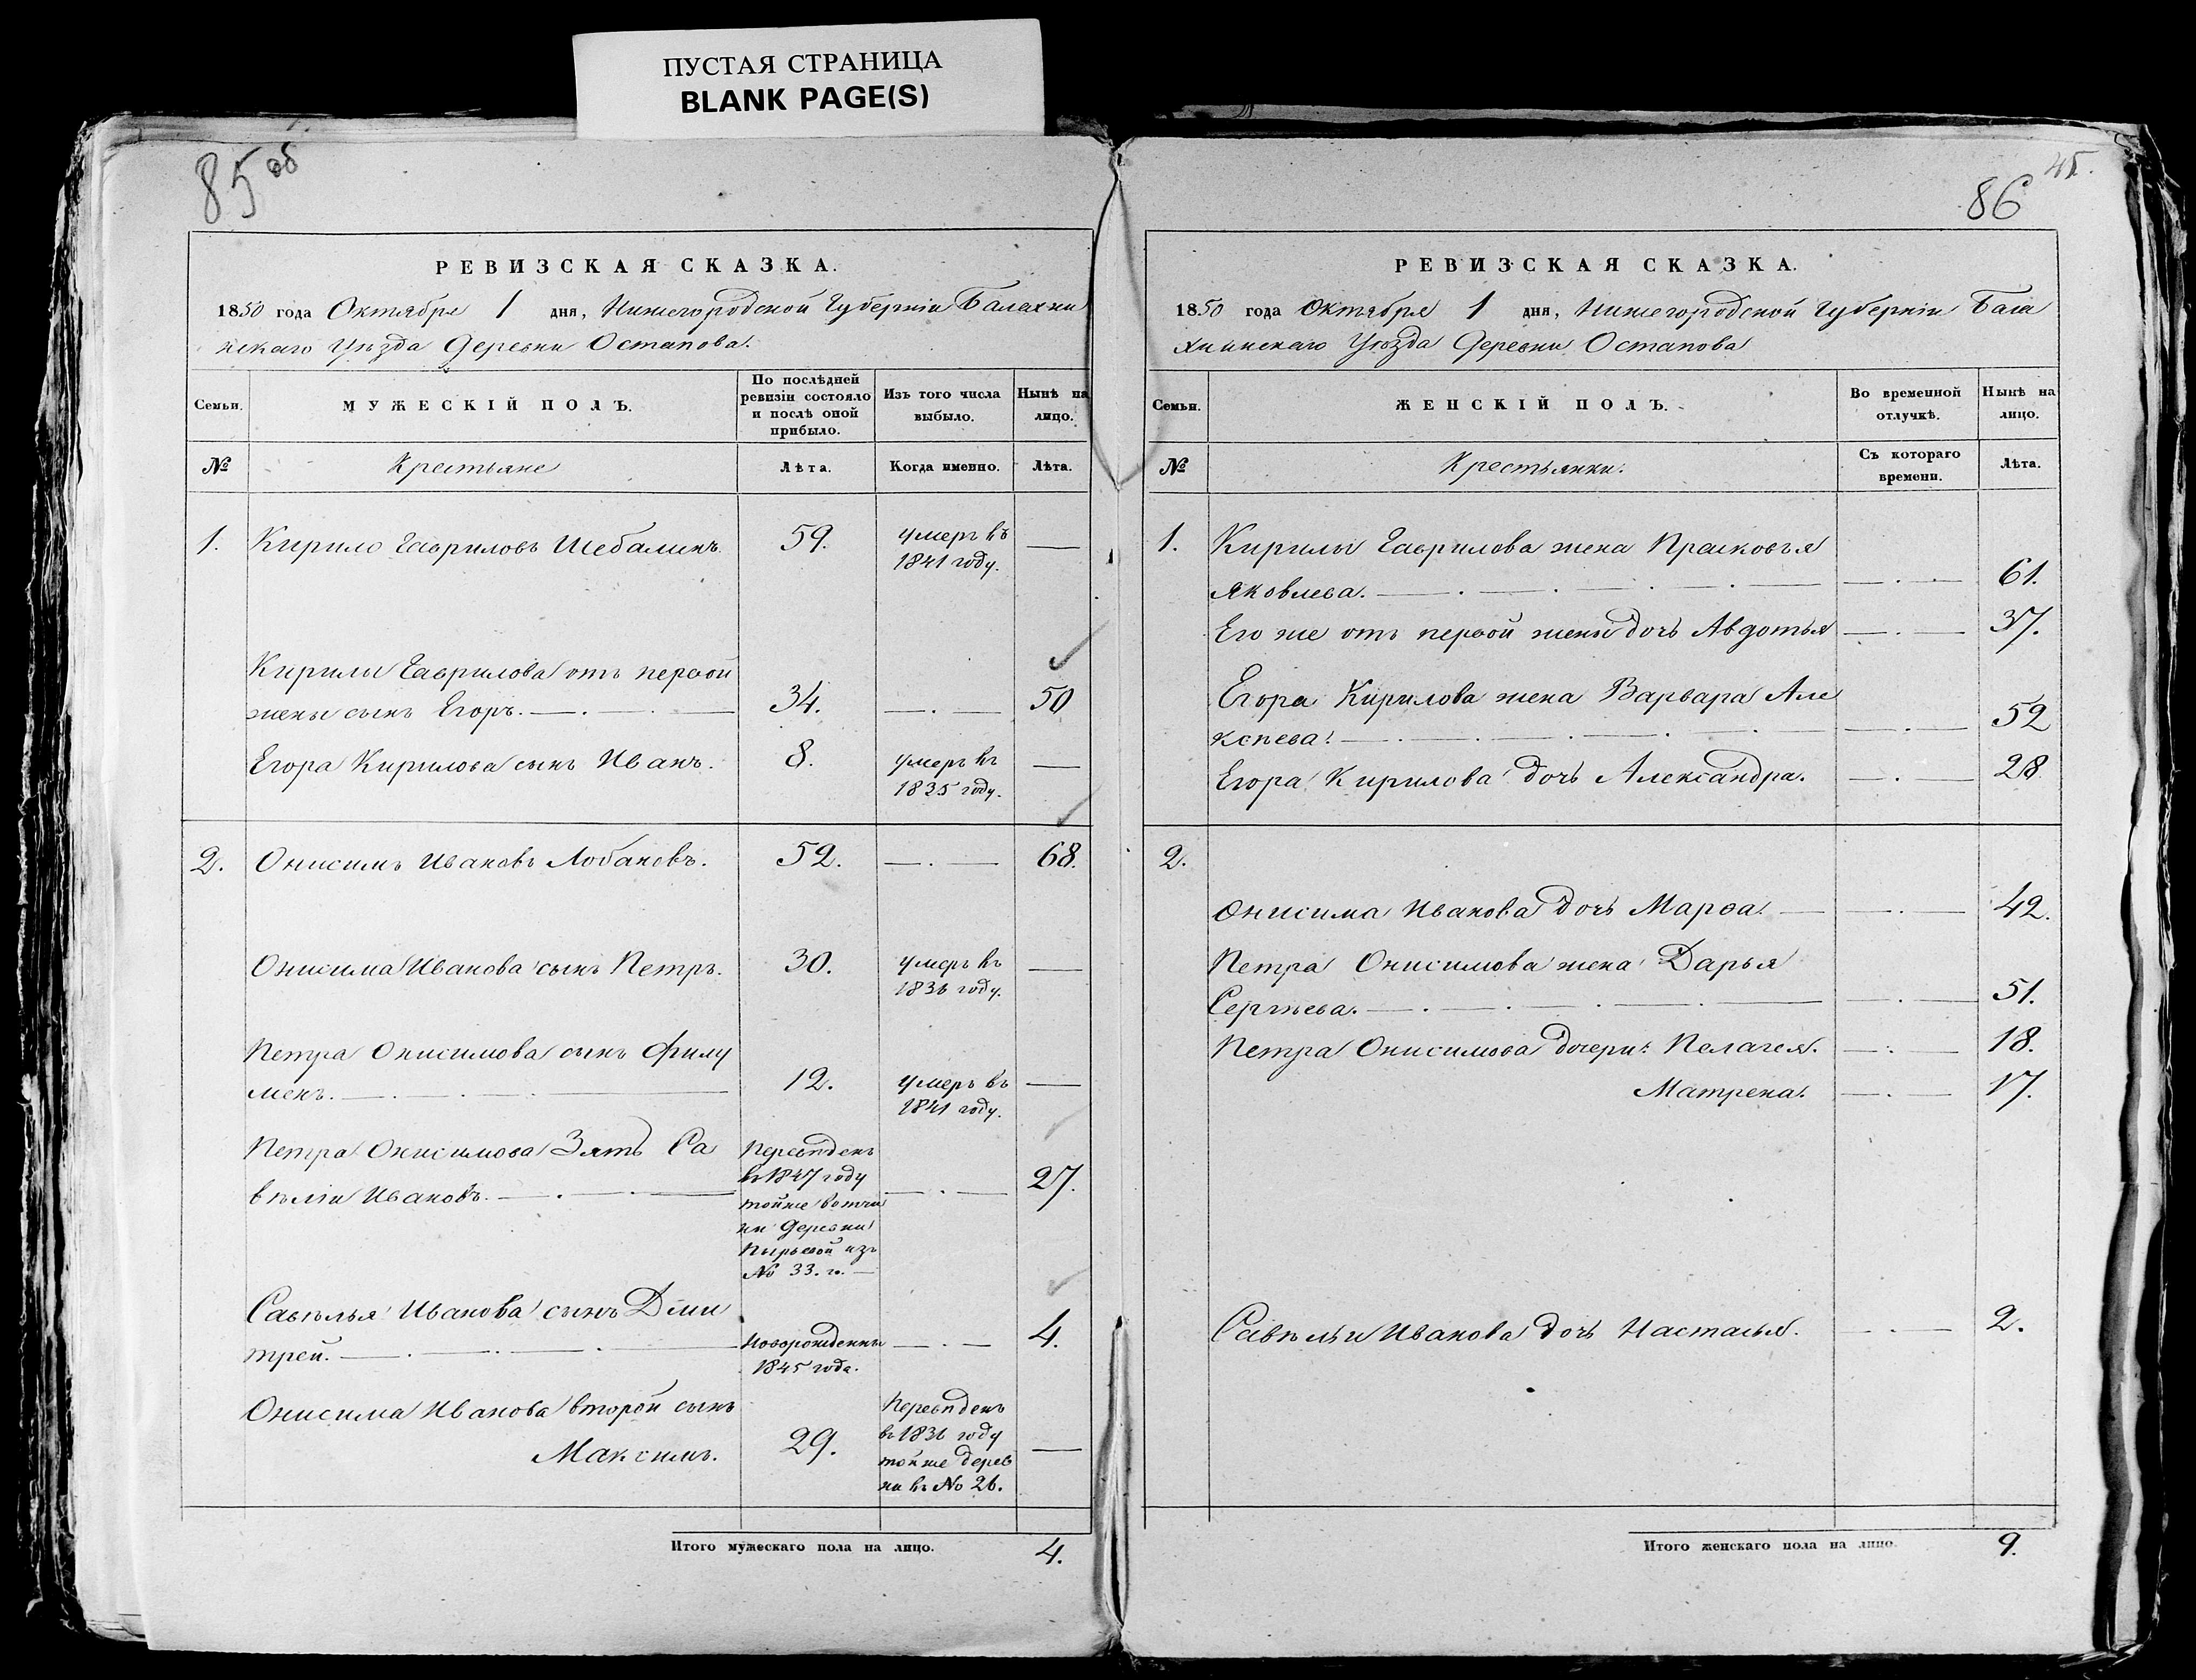 ПУСТАЯ СТРАНИЦА
BLANK PAGE(S)
85 об
РЕВИЗСКАЯ СКАЗКА.
1850 года Октября 1 дня, Нижегородской Губерніи Балахни
нскаго Уѣзда Деревни Остапова.
Семьи.
МУЖЕСКІЙ ПОЛЪ.
По послѣдней
ревизіи состояло
и послѣ оной
прибыло.
Изъ того числа
выбыло.
Нынѣ на
лицо.
№ Крестьяне Лѣта. Когда именно. Лѣта.
1. Кирило Гавриловъ Шебалинъ. 59. умеръ въ —
1841 году.
Кирилы Гаврилова отъ первой
жены сынъ Егоръ. 34. 50
Егора Кирилова сынъ Иванъ. 8. умеръ въ —
1835 году.
2. Онисимъ Ивановъ Лобановъ. 52. 68.
Онисима Иванова сынъ Петръ. 30. умеръ въ —
1836 году.
Петра Онисимова сынъ Филу
менъ. 12. умеръ въ —
1841 году.
Петра Онисимова Зять Са
вѣлій Ивановъ. 27.
Переведенъ
въ 1847 году
тойже вотчи
ны Деревни
Пырьевой изъ
№ 33. го. —
Савѣлья Иванова сынъ Дми
трей. 4.
Новорожденный
1845 года.
Онисима Иванова второй сынъ
Максимъ. 29. —
Переведенъ
въ 1836 году
тойже дерев
ни въ № 26.
Итого мужескаго пола на лицо. 4.
45.
86
РЕВИЗСКАЯ СКАЗКА.
1850 года Октября 1 дня, Нижегородской Губерніи Бала
хнинскаго Уѣзда Деревни Остапова
Семьи.
ЖЕНСКІЙ ПОЛЪ.
Во временной
отлучкѣ.
Нынѣ на
лицо.
№ Крестьянки. Съ котораго
времени. Лѣта.
1. Кирилы Гаврилова жена Прасковья
Яковлева. 61.
Его же отъ первой жены дочь Авдотья 37.
Егора Кирилова жена Варвара Але
ксѣева. 52
Егора Кирилова дочь Александра. 28
2.
Онисима Иванова дочь Марѳа. 42.
Петра Онисимова жена Дарья
Сергѣева. 51.
Петра Онисимова дочери: Пелагея. 18.
Матрена. 17.
Савѣлья Иванова дочь Настасья. 2.
Итого женскаго пола на лицо. 9.